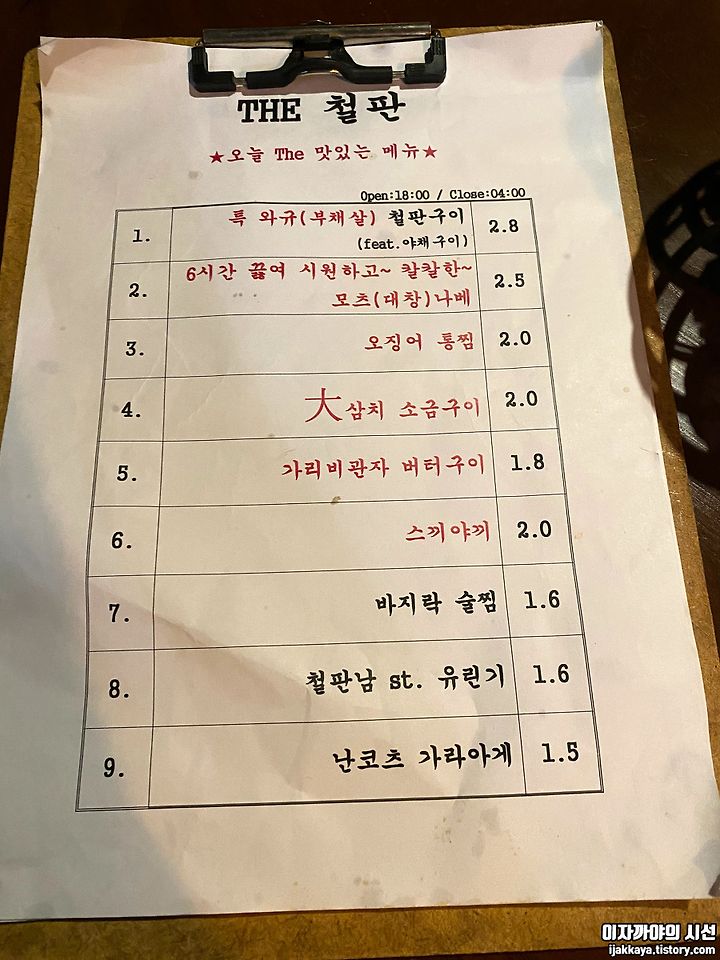 THE 철판
★오늘 The 맛있는 메뉴★
Open:18:00 / Close:04:00
1. 특 와규(부채살) 철판구이 2.8
(feat.야채구이)
2. 6시간 끓여 시원하고~ 칼칼한~ 2.5
모츠(대창)나베
3. 오징어 통찜 2.0
4. 大삼치 소금구이 2.0
5. 가리비관자 버터구이 1.8
6. 스끼야끼 2.0
7. 바지락 술찜 1.6
8. 철판남 st. 유린기 1.6
9. 난코츠 가라아게 1.5
이자까야의 시선
ijakkaya.tistory.com